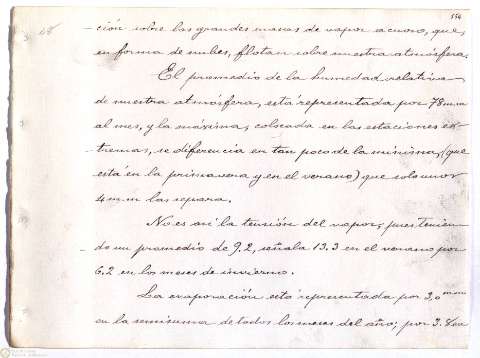 556
ción sobre las grandes masas de vapor acuoso, que,
en forma de nubes, flotan sobre nuestra atmósfera.
El promedio de la humedad relativa
de nuestra atmósfera, está representada por 78 m.m
al mes, y la máxima, colocada en las estaciones ex-
tremas, se diferencia en tan poco de la mínima, (que
está en la primavera y en el verano) que solo unos
4 m.m las separa.
No es así la tensión del vapor; pues tenien-
do un promedio de 9.2, señala 13.3 en el verano por
6.2 en los meses de invierno.
La evaporación está representada por 3,0 mm
en la semisuma de todos los meses del año; por 3.8